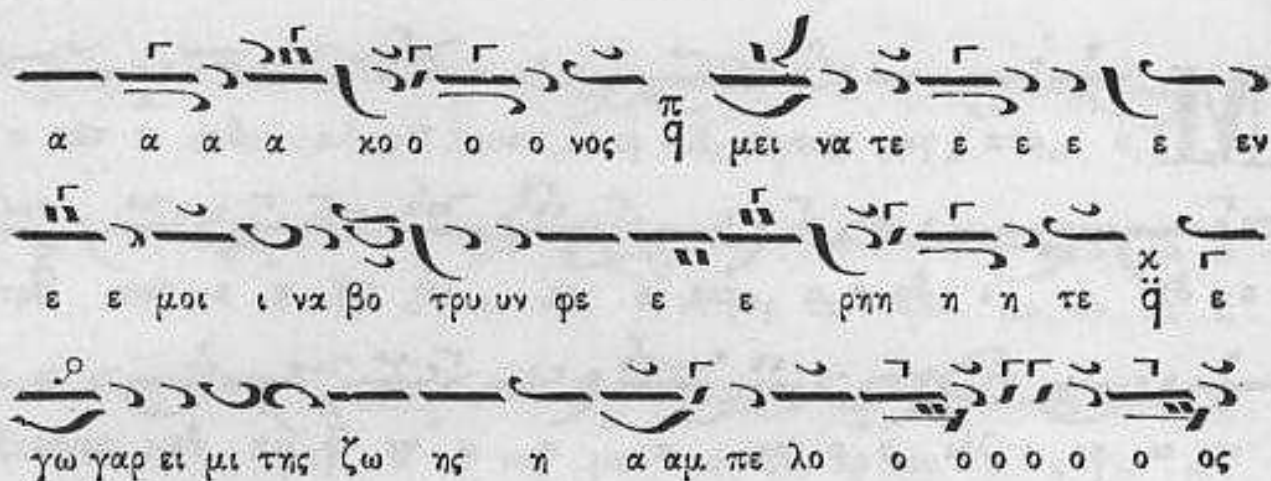 α α α α κο ο ο ο νος π q μει να τε ε ε ε ε εν
ε ε μοι ι να βο τρυ υν φε ε ε ρηη η η τε κ q̈ ε
γω γαρ ει μι της ζω ης η α αμ πε λο ο ο ο ο ο ο ος